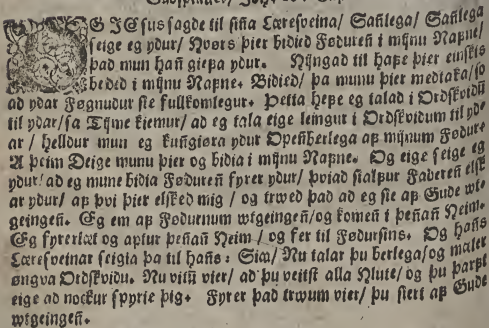 OG JEsus sagde til siña Læresveina/ Sañlega/ Sañlega
seige eg ydur/ Hvørs þier bidied Føduren̄ i mijnu Nafne/
þad mun hañ giefa ydur. Hijngad til hafe þier einskis
beded i mijnu Nafne. Bidied/ þa munu þier medtaka/ so
ad ydar Føgnudur sie fullkomlegur. Þetta hefe eg talad i Ordskvidū
til ydar/ sa Tijme kiemur/ ad eg tala eige leingur i Ordskvidum til yd-
ar/ helldur mun eg kungiøra ydur Openberlega af mijnum Fødur.
A þeim Deige munu þier og bidia i mijnu Nafne. Og eige seige eg
ydur/ ad eg mune bidia Føduren̄ fyrer ydur/ þviad sialfur Faderen̄ elsk-
ar ydur/ af þvi þier elsked mig/ og trwed þad ad eg sie af Gude wt-
geingeñ. Eg em af Fødurnum wtgeingeñ/ og komeñ i þeñañ Heim.
Eg fyrerlæt og aptur þeñañ Heim/ og fer til Fødursins. Og hañs
Læresveinar seigia þa til hañs: Sia/ Nu talar þu berlega/ og mæler
øngva Ordskvidu. Nu vitū vier/ ad þu veitst alla Hlute/ og þu þarft
eige ad nockur spyrie þig. Fyrer þad trwum vier/ þu siert af Gude
wtgeingeñ.